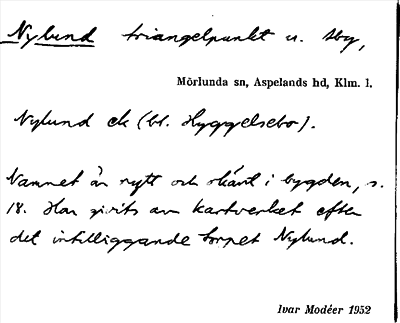 Nylund triangelpunkt u. sby,
Mörlunda sn, Aspelands hd, Klm. l.
Nylund ek (bl. Hyggelsebo).
Namnet är nytt och okänt i bygden, s.
18. Har givits av kartverket efter
det intilliggande torpet Nylund.
Ivar Modéer 1952